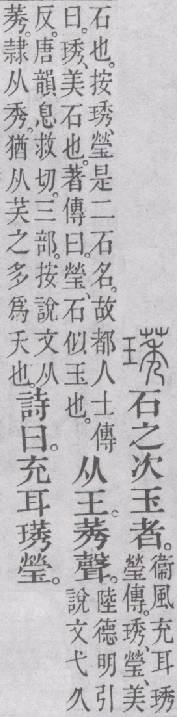 璓
石之次玉者。
衞風充耳琇
瑩傳。琇、瑩、美
石也。按琇、瑩是二石名。故都人士傳
曰。琇、美石也。著傳曰。瑩、石似玉也。
从王。莠聲。
陸德明引
說文弋久
反。唐韻息救切。三部。按說文从
莠。隷从秀。猶从芺之多爲夭也。
詩曰。充耳璓瑩。